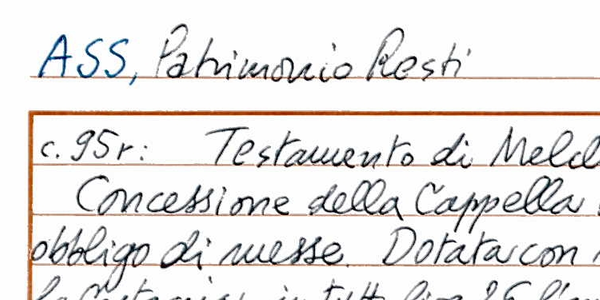 ASS, Patrimonio Resti
c. 95r: Testamento di
Concessione della Cappella
obbligo di messe. Dotata con
in tutto lire 25